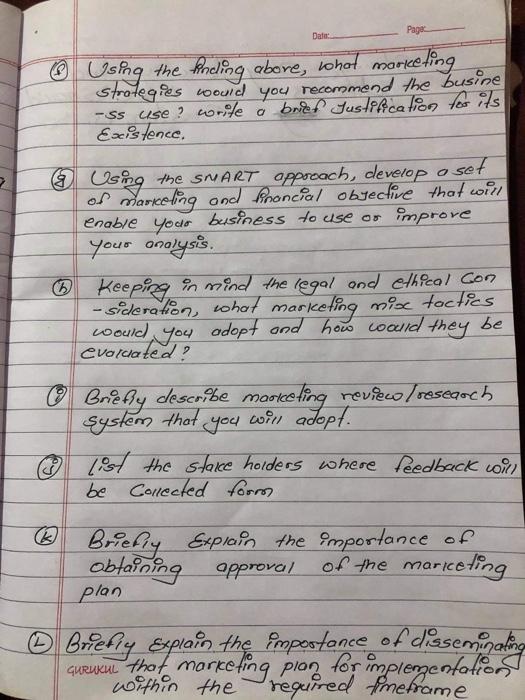 Date: Page:
(f) Using the finding above, what marketing
strategies would you recommend the busine
-ss use? write a brief Justification for its
Existence.
(g) Using the SMART approach, develop a set
of marketing and financial objective that will
enable your business to use or improve
your analysis.
(h) Keeping in mind the legal and ethical Con
-sideration, what marketing mix tactics
would you adopt and how would they be
evaluated?
(i) Briefly describe marketing review/research
system that you will adopt.
(j) list the stake holders where feedback will
be Collected form
(k) Briefly Explain the importance of
obtaining approval of the marketing
plan
(L) Briefly Explain the importance of disseminating
GURUKUL that marketing plan for implementation
within the required timeframe